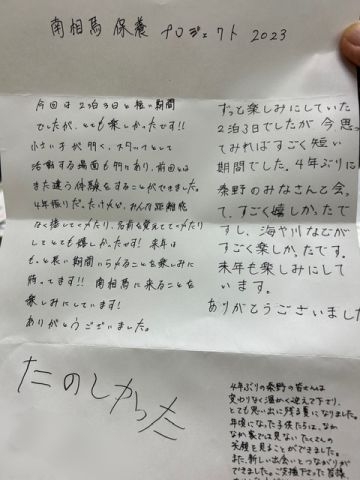 南相馬 保養 プロジェクト 2023
今回は2泊3日と短い期間
でしたが、とても楽しかったです!!
小さい子が多く、スタッフとして
活動する場面も多々あり、前回とは
また違う体験をすることができました。
4年振りだったけど、みんな距離感
なく接してくれたり、名前を覚えててくれたり
してとても嬉しかったです! 来年は
もっと長い期間いられることを楽しみに
待ってます!! 南相馬に来ることを
楽しみにしています!
ありがとうございました。
ずっと楽しみにしていた
2泊3日でしたが今思っ
てみればすごく短い
期間でした。4年ぶりに
秦野のみなさんと会っ
て、すごく嬉しかったで
すし、海や川などが
すごく楽しかったです。
来年も楽しみにして
います。
ありがとうございました
たのしかった
4年ぶりの秦野の皆さんは
変わりなく温かく迎えて下さり、
とても思い出に残る夏になりました。
年頃になった子供たちは、なか
なか家では見ない たくさんの
笑顔を見ることができました。
また、新しい出会いとつながりが
できました。ご支援下さった皆様、